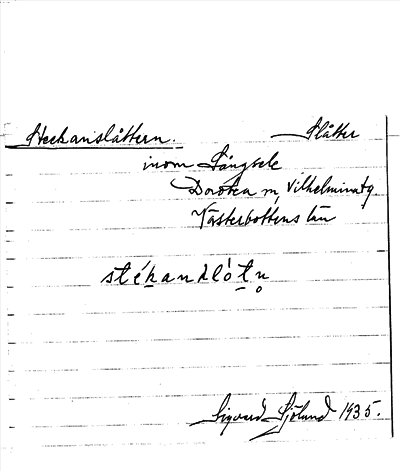 Steckanslåttern. Slåtter
inom Långsele
Dorotea m, Vilhelmina tg
Västerbottens län
stékanslòtn̥
Sigurd Sjölund 1935.